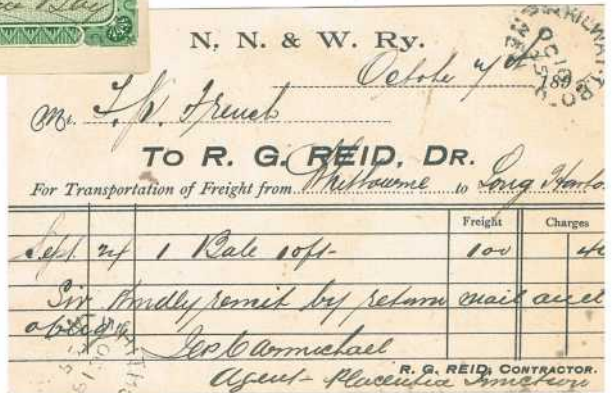 N. N. & W. Ry.
October 7th 189
Mr. French
TO R. G. REID, DR.
For Transportation of Freight from Whitbourne to Long Harbo
Freight Charges
Sept 24 1 Bale 100 40
Sir Kindly remit by return mail and
oblige
Jas Carmichael
R. G. REID, CONTRACTOR.
Agent - Placentia Junction